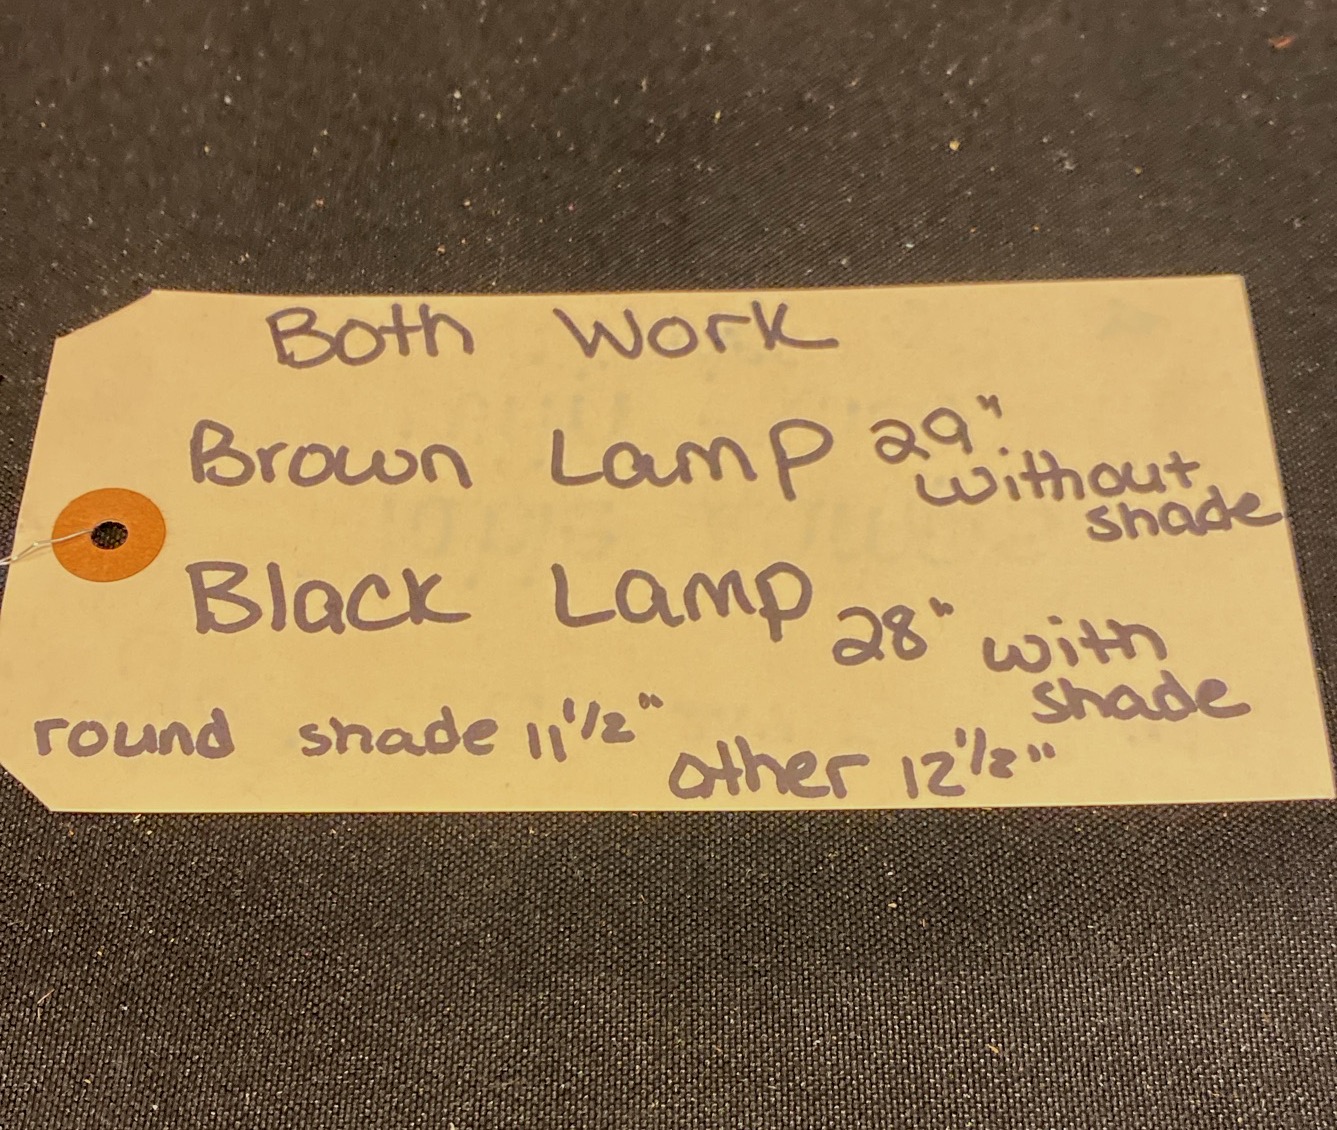 Both Work
Brown Lamp 29" without shade
Black Lamp 28" with shade
round shade 11 1/2" other 12 1/2"